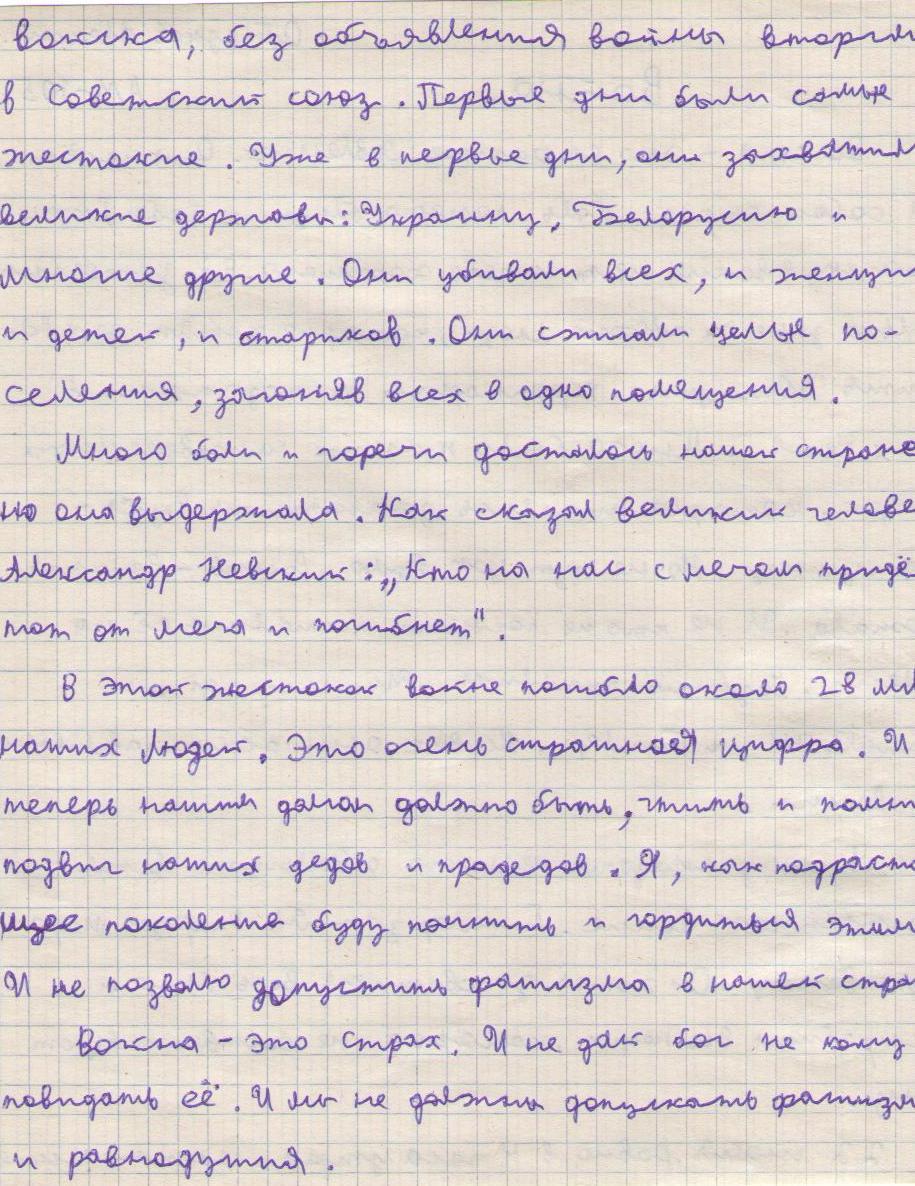 войска, без объявления войны вторгли
в Советский союз. Первые дни были самые
жестокие. Уже в первые дни, они захватили
великие державы: Украину, Белорусию и
многие другие. Они убивали всех, и женщи
и детей, и стариков. Они сжигали целые по-
селения, загоняв всех в одно помещения.
Много боли и горечи досталось нашей стране
но она выдержала. Как сказал великий челове
Александр Невский: „Кто на нас с мечом придё
тот от меча и погибнет".
В этой жестокой войне погибло около 28 мл
наших людей. Это очень страшная цифра. И
теперь нашим долгом должно быть, чтить и помни
подвиг наших дедов и прадедов. Я, как подраста
ющее поколение буду помнить и гордиться этим
И не позволю допустить фашизма в нашей стра
Война - это страх. И не дай бог не кому
повидать её. И мы не должны допускать фашизм
и равнодушия.